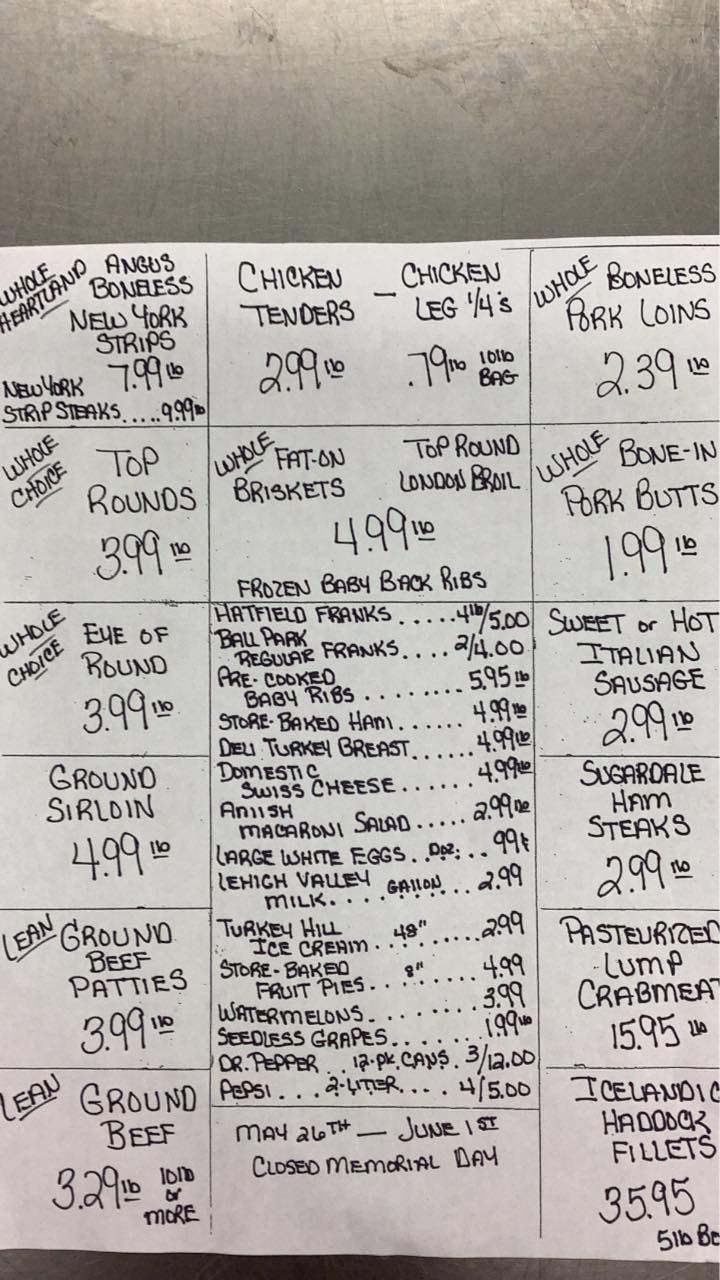 WHOLE HEARTLAND
ANGUS
BONELESS
NEW YORK
STRIPS
7.99 lb
NEW YORK
STRIP STEAKS.....9.99 lb
CHICKEN
TENDERS
2.99 lb
-
CHICKEN
LEG 1/4's
.79 lb 10lb
BAG
WHOLE
BONELESS
PORK LOINS
2.39 lb
WHOLE
CHOICE
TOP
ROUNDS
3.99 lb
WHOLE
FAT-ON
BRISKETS
TOP ROUND
LONDON BROIL
4.99 lb
FROZEN BABY BACK RIBS
WHOLE
BONE-IN
PORK BUTTS
1.99 lb
WHOLE
CHOICE
EYE OF
ROUND
3.99 lb
GROUND
SIRLOIN
4.99 lb
LEAN
GROUND
BEEF
PATTIES
3.99 lb
LEAN
GROUND
BEEF
3.29 lb 10lb
or
MORE
HATFIELD FRANKS.....4lb/5.00
BALL PARK
REGULAR FRANKS....2/4.00
PRE-COOKED
BABY RIBS........5.95 lb
STORE-BAKED HAM......4.99 lb
DELI TURKEY BREAST......4.99 lb
DOMESTIC
SWISS CHEESE.......4.99 lb
AMISH
MACARONI SALAD.....2.99 lb
LARGE WHITE EGGS..DOZ...99¢
LEHIGH VALLEY
MILK....GALLON...2.99
TURKEY HILL
ICE CREAM...48"......2.99
STORE-BAKED
FRUIT PIES..8".......4.99
WATERMELONS.........3.99
SEEDLESS GRAPES.......1.99 lb
DR. PEPPER..12-PK. CANS. 3/12.00
PEPSI...2-LITER....4/5.00
MAY 26TH — JUNE 1ST
CLOSED MEMORIAL DAY
SWEET or HOT
ITALIAN
SAUSAGE
2.99 lb
SUGARDALE
HAM
STEAKS
2.99 lb
PASTEURIZED
LUMP
CRABMEAT
15.95 lb
ICELANDIC
HADDOCK
FILLETS
35.95
5lb